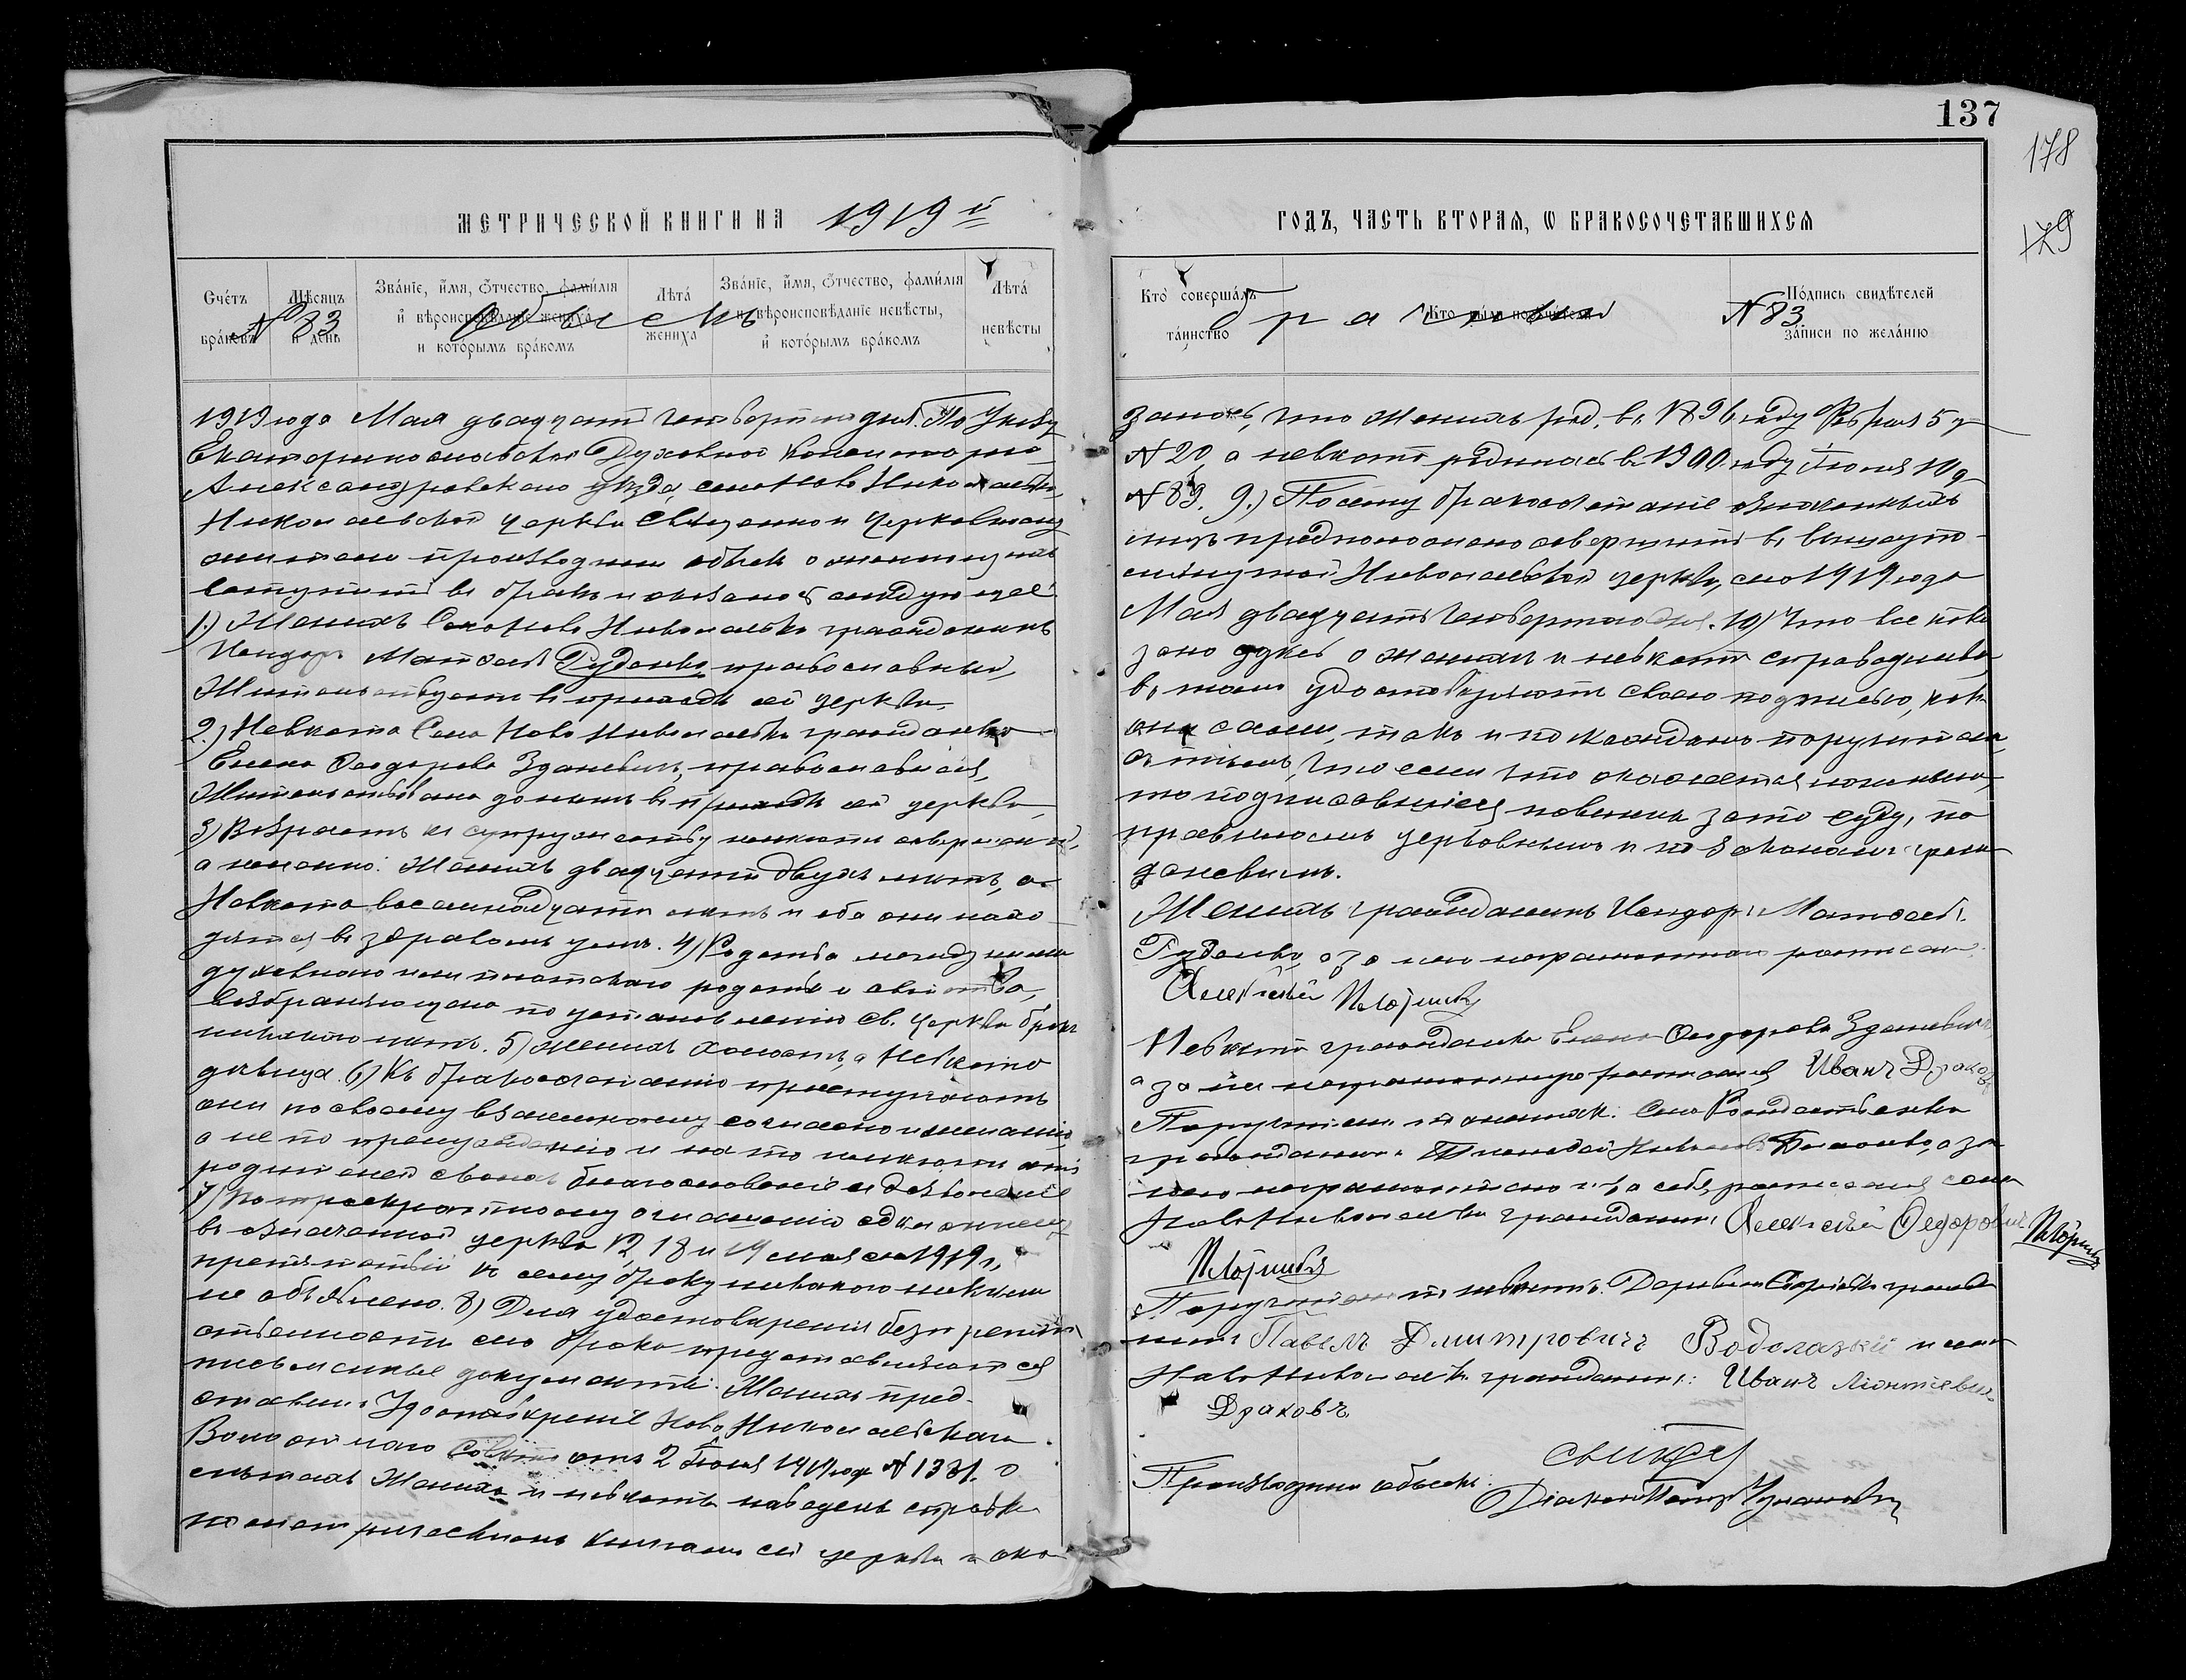 137
178
179
МЕТРИЧЕСКОЙ КНИГИ НА 1919 й
ГОДЪ, ЧАСТЬ ВТОРАЯ, Ѡ БРАКОСОЧЕТАВШИХСЯ
Счетъ браковъ
Мѣсяцъ и день
Званіе, имя, Ѿчество, фамилія и вѣроисповѣданіе жениха и которымъ бракомъ
Лѣта жениха
Званіе, имя, Ѿчество, фамилія и вѣроисповѣданіе невѣсты, и которымъ бракомъ
Лѣта невѣсты
Кто совершалъ таинство
Кто были поручители
Подпись свидѣтелей записи по желанію
№ 83 Обыскъ
брачный № 83
1919 года Мая двадцать четвертаго дня. По Указу
Екатеринославской Духовной Консисторіи
Александровскаго уѣзда, села Ново Николаевки,
Николаевской церкви Священно и церковнослу
жители производили обыскъ о желающихъ
вступить въ бракъ и оказалось слѣдующее:
1.) Женихъ Села Ново Николаевки гражданинъ
Исидоръ Матѳеевъ Гуденко, православный,
Жительствуетъ въ приходѣ сей церкви.
2.) Невѣста Села Ново Николаевки гражданка
Елена Ѳеодорова Зданевичъ, православная,
Жительствовала донынѣ въ приходѣ сей церкви,
3) Возрастъ къ супружеству имѣютъ совершенный,
а именно: Женихъ двадцати двухъ лѣтъ, а
Невѣста восемнадцати лѣтъ и оба они нахо
дятся въ здравомъ умѣ. 4) Родства между ними
духовнаго или плотскаго родства и свойства,
возбраняющаго по установленію св. Церкви бракъ
никакого нѣтъ. 5) женихъ холостъ, а Невѣста
дѣвица. 6) Къ бракосочетанію приступаютъ
они по своему взаимному согласію и желанію,
а не по принужденію и на то имѣютъ отъ
родителей своихъ благословеніе и дозволеніе
7) По троекратному оглашенію сдѣланному
въ означенной церкви 12, 18 и 19 мая сего 1919 г.,
препятствій къ сему браку никакого никѣмъ
не объявлено. 8) Для удостовѣренія безпрепят
ственности сего брака представляются
письменные документы: Женихъ пред-
ставилъ Удостовѣреніе Ново Николаевскаго
Волостного Совѣта отъ 2 1919 года № 1331. О
лѣтахъ Жениха и невѣсты наведена справка
по метрическимъ книгамъ сей церкви и ока
залось, что женихъ род. въ 1896 году Февраля 5 д
№ 20, а невѣста родилась въ 1900 году Іюня 10 д
№ 83. 9.) Посему бракосочетаніе означенныхъ
лицъ предположено совершить въ вышеупо-
мянутой Николаевской церкви, сего 1919 года
Мая двадцать четвертаго дня. 10) Что все пока
зано здѣсь о женихѣ и невѣстѣ справедливо
въ томъ удостовѣряютъ своею подписью, какъ
они сами, такъ и по каждомъ поручители,
съ тѣмъ, что если что окажется ложнымъ,
то подписавшіеся повинны за то суду, по
правиламъ церковнымъ и по законамъ граж
данскимъ.
Женихъ гражданинъ Исидоръ Матѳеевъ
Гуденко, а за него неграмотнаго расписался
Алексѣй
Невѣста гражданка Елена Ѳеодорова Зданевичъ,
а за нее неграмотную расписался Иванъ Драковъ
Поручители по женихѣ: Села Рождественки
гражданинъ Николаевъ, а за
него неграмотнаго и за себя расписался села
Ново Николаевки гражданинъ Алексѣй Ѳедоровичъ
Поручители по невѣстѣ: Деревни гражда
нинъ Павелъ Дмитровичъ Водолазкій и села
Ново Николаевки гражданинъ: Иванъ Леонтіевичъ
Драковъ.
Производили обыскъ:
Діаконъ Петръ